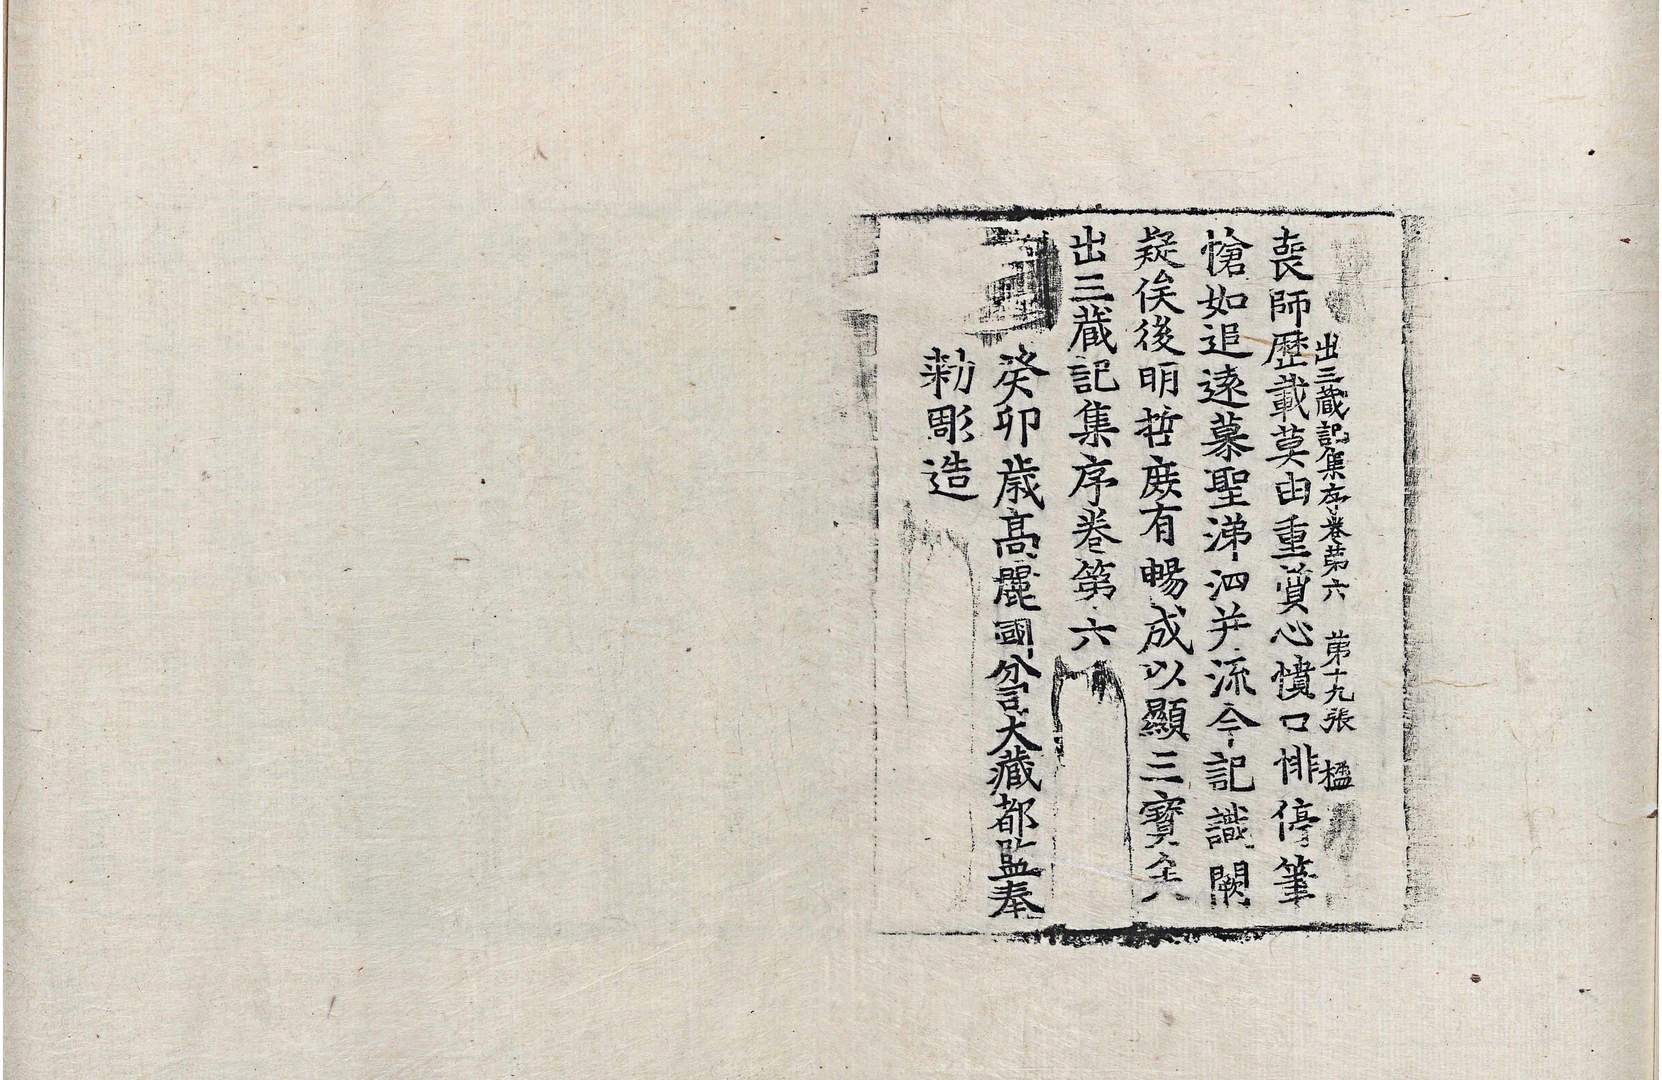 出三藏記集序卷第六 第十九張 楹
喪師歷載莫由重質心憤口悱停筆
愴如追遠慕聖涕泗并流今記識闕
疑俟後明哲庶有暢成以顯三寶
出三藏記集序卷第六
癸卯歲高麗國分司大藏都監奉
勅彫造